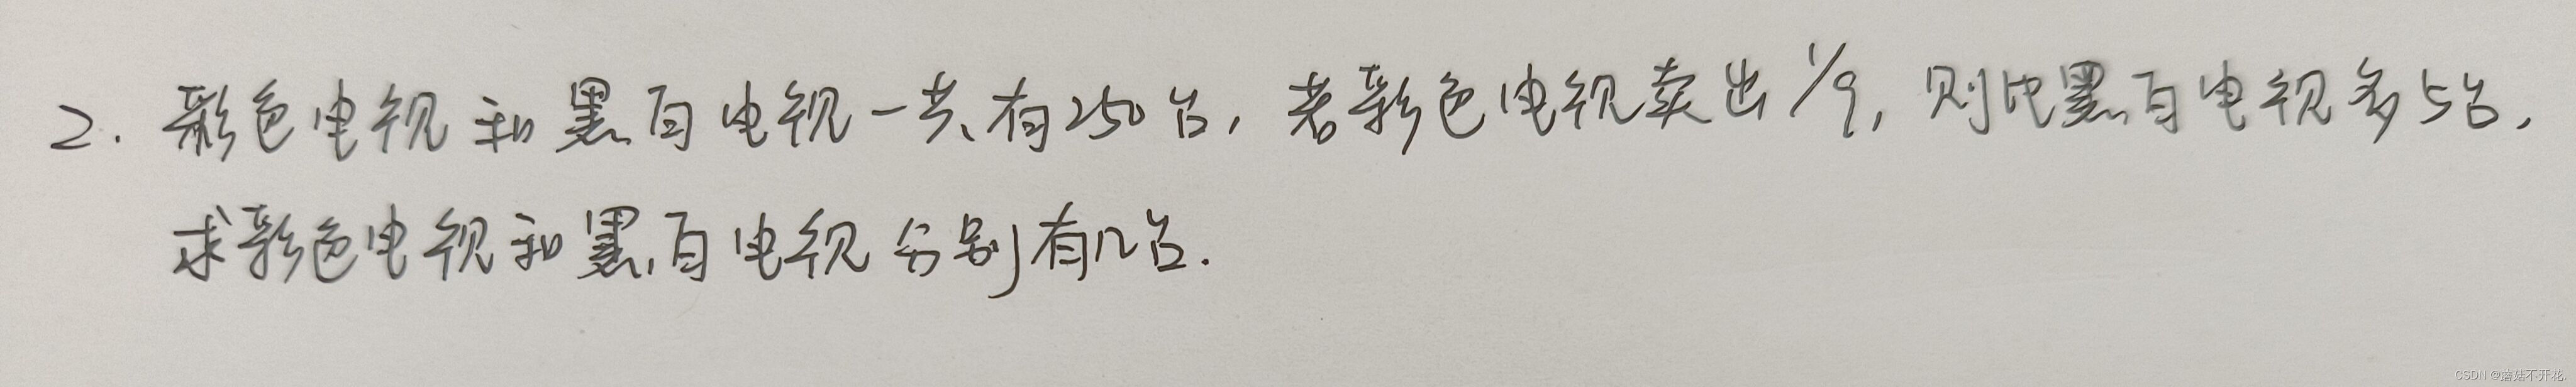 2. 彩色电视和黑白电视一共有250台，若彩色电视卖出1/9，则比黑白电视多5台，
求彩色电视和黑白电视分别有几台.
CSDN @蘑菇不开花.